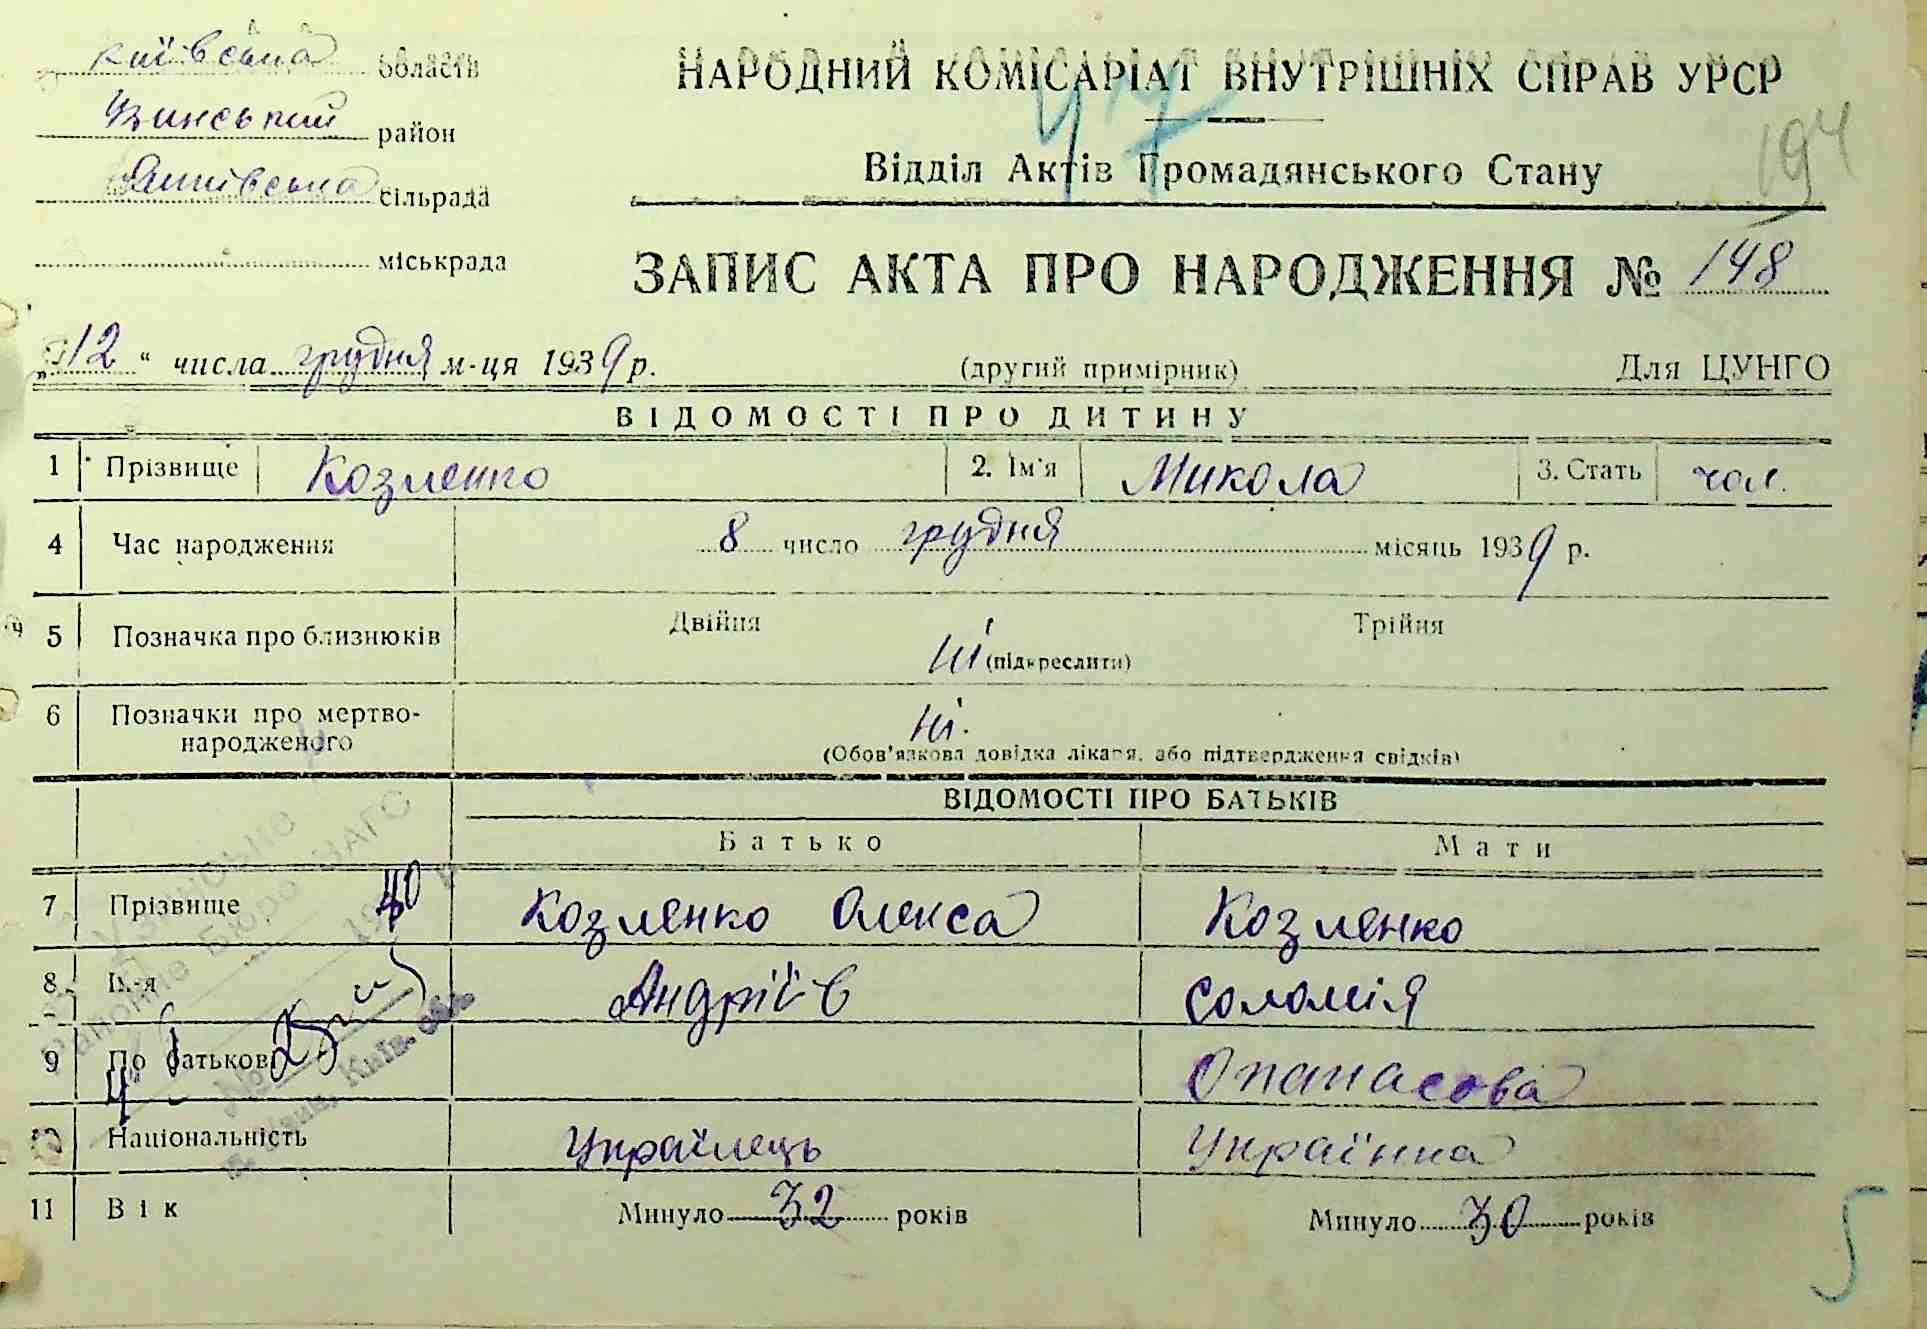 Київська область
Узинський район
сільрада
міськрада
НАРОДНИЙ КОМІСАРІАТ ВНУТРІШНІХ СПРАВ УРСР
47
194
Відділ Актів Громадянського Стану
ЗАПИС АКТА ПРО НАРОДЖЕННЯ № 148
„12“ числа грудня м-ця 1939 р. (другий примірник) Для ЦУНГО
ВІДОМОСТІ ПРО ДИТИНУ
1 Прізвище Козленко 2. Ім'я Микола 3. Стать чол.
4 Час народження 8 число грудня місяць 1939 р.
5 Позначка про близнюків Двійня ні (підкреслити) Трійня
6 Позначки про мертво-
народженого ні.
(Обов'язкова довідка лікаря, або підтвердження свідків)
ВІДОМОСТІ ПРО БАТЬКІВ
Батько Мати
7 Прізвище Козленко Олекса Козленко
8 Ім-я Андріїв Соломія
9 По батькові Опанасова
10 Національність Українець Українка
11 Вік Минуло 32 років Минуло 30 років
Узинське
Районне Бюро ЗАГС
40
м. Узин, Київ. обл.
5